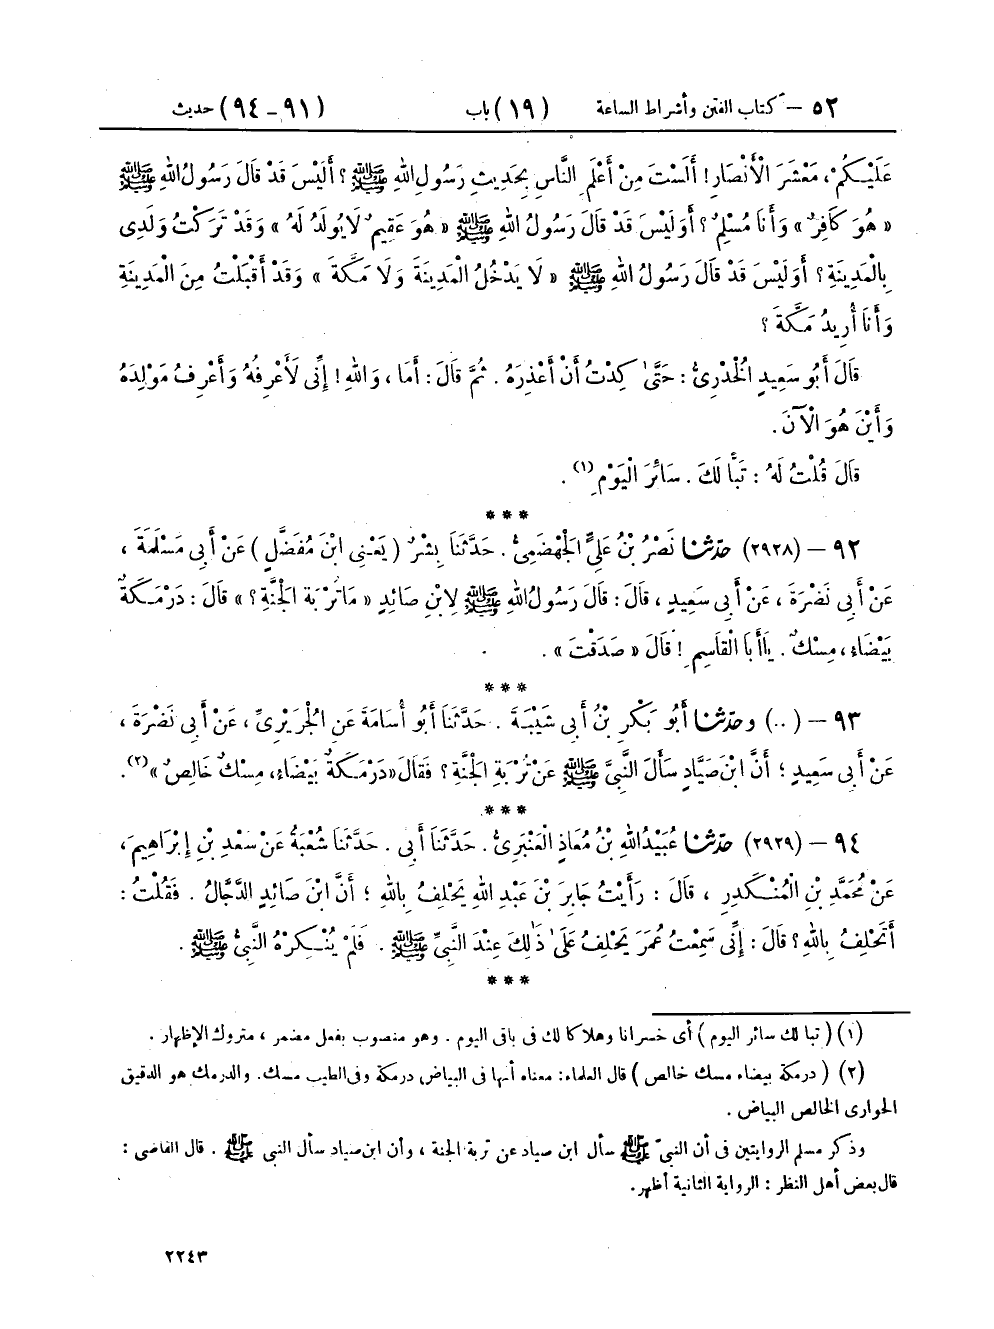 ٥٢ – كتاب الفتن وأشراط الساعة (١٩) باب (٩١ - ٩٤) حديث
عَلَيْكُمْ، مَعْشَرَ الْأَنْصَارِ! أَلَسْتَ مِنْ أَعْلَمِ النَّاسِ بِحَدِيثِ رَسُولِ اللهِ ﷺ؟ أَلَيْسَ قَدْ قَالَ رَسُولُ اللهِ ﷺ
« هُوَ كَافِرٌ » وَأَنَا مُسْلِمٌ؟ أَوَلَيْسَ قَدْ قَالَ رَسُولُ اللهِ ﷺ « هُوَ عَقِيمٌ لَا يُولَدُ لَهُ » وَقَدْ تَرَكْتُ وَلَدِى
بِالْمَدِينَةِ؟ أَوَلَيْسَ قَدْ قَالَ رَسُولُ اللهِ ﷺ « لَا يَدْخُلُ الْمَدِينَةَ وَلَا مَكَّةَ » وَقَدْ أَقْبَلْتُ مِنَ الْمَدِينَةِ
وَأَنَا أُرِيدُ مَكَّةَ؟
قَالَ أَبُو سَعِيدٍ الْخُدْرِىُّ: حَتَّىٰ كِدْتُ أَنْ أَعْذِرَهُ. ثُمَّ قَالَ: أَمَا، وَاللهِ! إِنِّى لَأَعْرِفُهُ وَأَعْرِفُ مَوْلِدَهُ
وَأَيْنَ هُوَ الْآنَ.
قَالَ قُلْتُ لَهُ: تَبًّا لَكَ. سَائِرَ الْيَوْمِ(١).
***
٩٢ – (٢٩٢٨) حدّثنا نَصْرُ بْنُ عَلِيٍّ الْجَهْضَمِىُّ. حَدَّثَنَا بِشْرٌ (يَعْنِى ابْنَ مُفَضَّلٍ) عَنْ أَبِى مَسْلَمَةَ،
عَنْ أَبِى نَضْرَةَ، عَنْ أَبِى سَعِيدٍ، قَالَ: قَالَ رَسُولُ اللهِ ﷺ لِابْنِ صَائِدٍ « مَا تُرْبَةُ الْجَنَّةِ؟ » قَالَ: دَرْمَكَةٌ
بَيْضَاءُ، مِسْكٌ. يَا أَبَا الْقَاسِمِ! قَالَ « صَدَقْتَ ».
***
٩٣ – (..) وحدّثنا أَبُو بَكْرِ بْنُ أَبِى شَيْبَةَ. حَدَّثَنَا أَبُو أُسَامَةَ عَنِ الْجُرَيْرِىِّ، عَنْ أَبِى نَضْرَةَ،
عَنْ أَبِى سَعِيدٍ؛ أَنَّ ابْنَ صَيَّادٍ سَأَلَ النَّبِىَّ ﷺ عَنْ تُرْبَةِ الْجَنَّةِ؟ فَقَالَ « دَرْمَكَةٌ بَيْضَاءُ، مِسْكٌ خَالِصٌ »(٢).
***
٩٤ – (٢٩٢٩) حدّثنا عُبَيْدُ اللهِ بْنُ مُعَاذٍ الْعَنْبَرِىُّ. حَدَّثَنَا أَبِى. حَدَّثَنَا شُعْبَةُ عَنْ سَعْدِ بْنِ إِبْرَاهِيمَ،
عَنْ مُحَمَّدِ بْنِ الْمُنْكَدِرِ، قَالَ: رَأَيْتُ جَابِرَ بْنَ عَبْدِ اللهِ يَحْلِفُ بِاللهِ؛ أَنَّ ابْنَ صَائِدٍ الدَّجَّالُ. فَقُلْتُ:
أَتَحْلِفُ بِاللهِ؟ قَالَ: إِنِّى سَمِعْتُ عُمَرَ يَحْلِفُ عَلَىٰ ذٰلِكَ عِنْدَ النَّبِىِّ ﷺ. فَلَمْ يُنْكِرْهُ النَّبِىُّ ﷺ.
***
(١) (تبا لك سائر اليوم) أى خسرانا وهلاكا لك فى باقى اليوم. وهو منصوب بفعل مضمر، متروك الإظهار.
(٢) (درمكة بيضاء مسك خالص) قال العلماء: معناه أنها فى البياض درمكة وفى الطيب مسك. والدرمك هو الدقيق
الحوارى الخالص البياض.
وذكر مسلم الروايتين فى أن النبىّ ﷺ سأل ابن صياد عن تربة الجنة، وأن ابن صياد سأل النبى ﷺ. قال القاضى:
قال بعض أهل النظر: الرواية الثانية أظهر.
٢٢٤٣